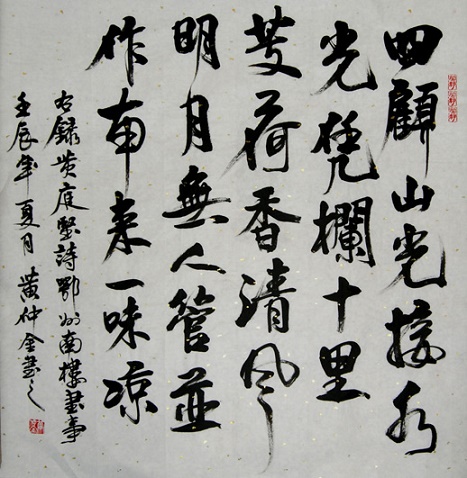 四顧山光接水
光凭欄十里
芰荷香清風
明月無人管並
作南来一味涼
右録黄庭堅詩鄂州南樓書事
壬辰年夏月黄仲金書之